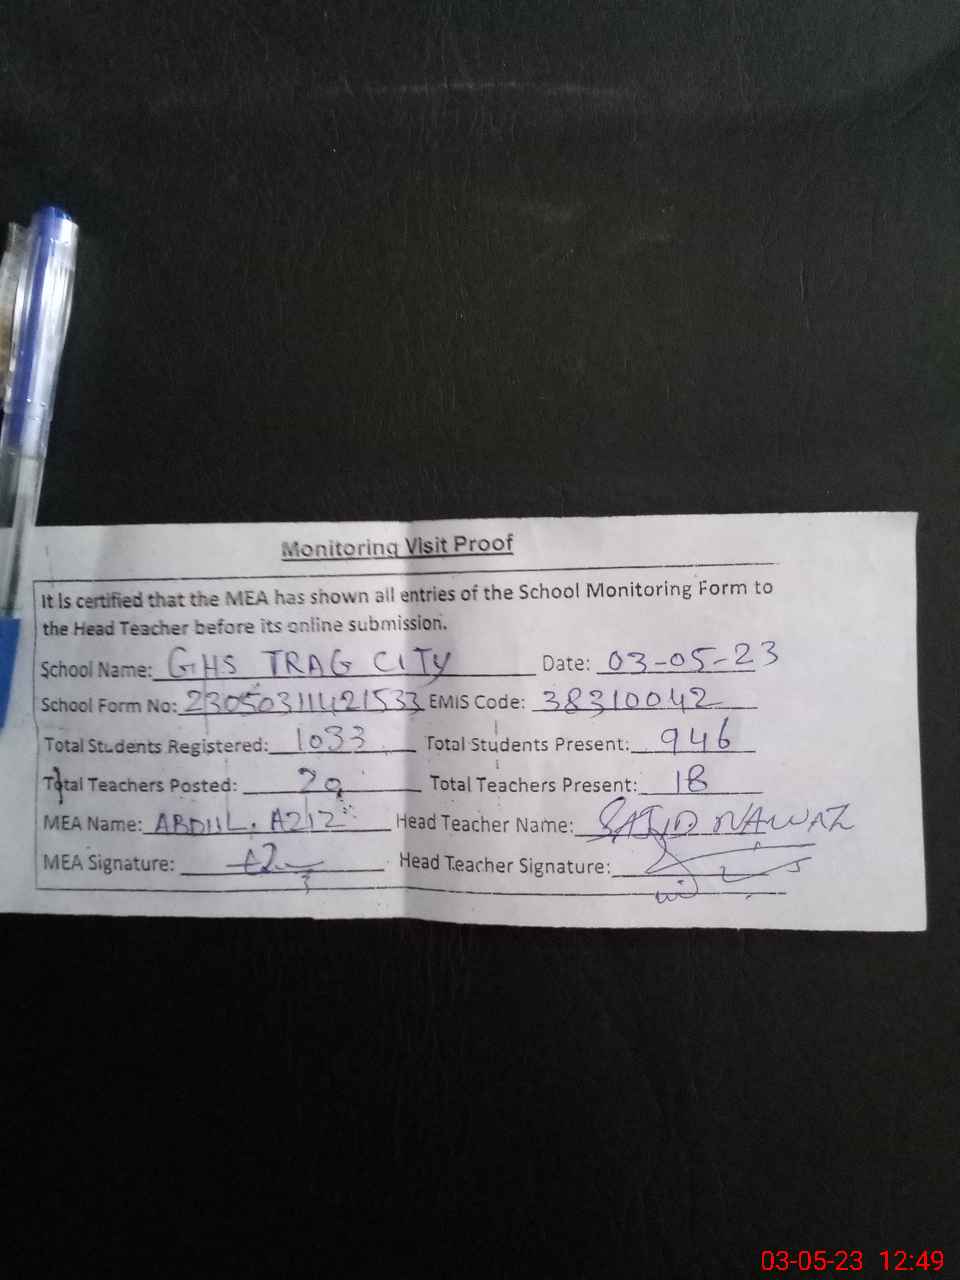 Monitoring Visit Proof
It is certified that the MEA has shown all entries of the School Monitoring Form to
the Head Teacher before its online submission.
School Name: GHS TRAG CITY Date: 03-05-23
School Form No: 23050311421533 EMIS Code: 38310042
Total Students Registered: 1033 Total Students Present: 946
Total Teachers Posted: Total Teachers Present: 18
MEA Name: ABDUL. AZIZ Head Teacher Name: SAJID NAWAZ
MEA Signature: Head Teacher Signature:
03-05-23 12:49